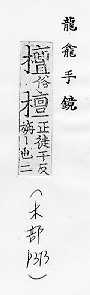 龍龕手鏡
𢷺俗檀正徒干反
旃丨也二
（木部
P373）